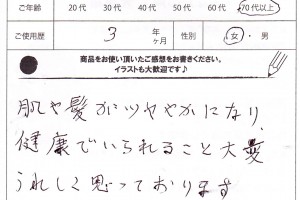 ご年齢 20代 30代 40代 50代 60代 70代以上
ご使用歴 3 年 ヶ月 性別 女・男
商品をお使い頂いたご感想をお書きください。
イラストも大歓迎です♪
肌や髪がツヤやかになり、
健康でいられること大変
うれしく思っております